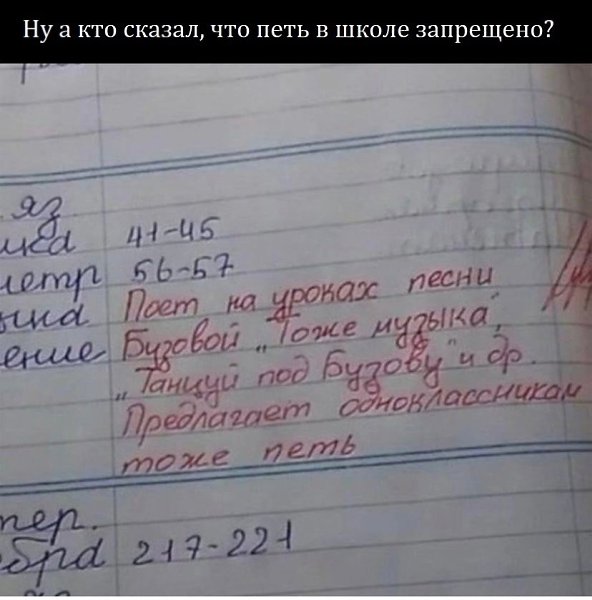 Ну а кто сказал, что петь в школе запрещено?
яз
ика 41-45
метр 56-57
ыка Поет на уроках песни
ение Бузовой „Тоже музыка",
„Танцуй под Бузову" и др.
Предлагает одноклассникам
тоже петь
тер.
бра 217-221